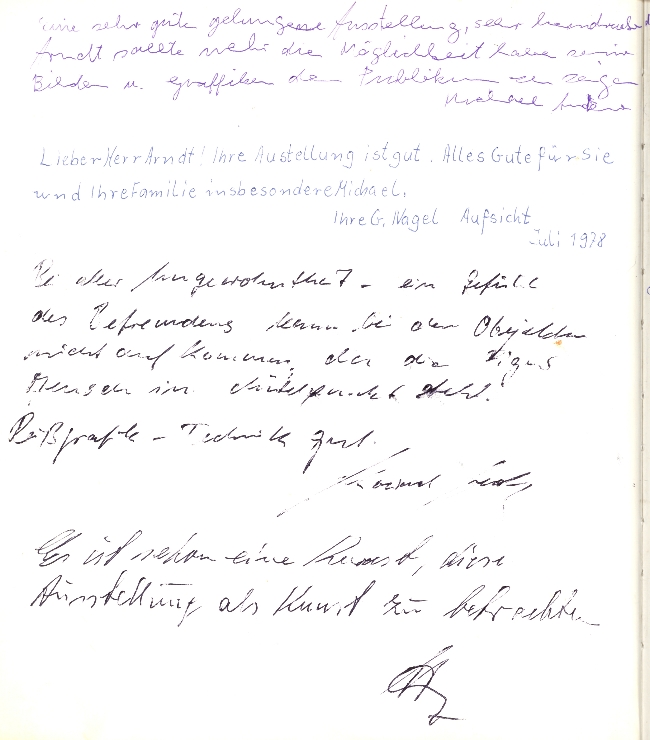 Eine sehr gute gelungene Ausstellung, sehr
Arndt sollte mehr die Möglichkeit haben seine
Bilder u. Graffiken dem Publikum zu zeigen
Michael
Lieber Herr Arndt! Ihre Austellung ist gut. Alles Gute für Sie
und Ihre Familie insbesondere Michael.
Ihre G. Nagel Aufsicht
Juli 1978
Bei aller Ungewohntheit - ein Gefühl
des Befremdens kann bei den Objekten
nicht aufkommen, da die Figur
Mensch im Mittelpunkt steht.
- Technik gut.
Es ist schon eine Kunst, diese
Ausstellung als Kunst zu betrachten